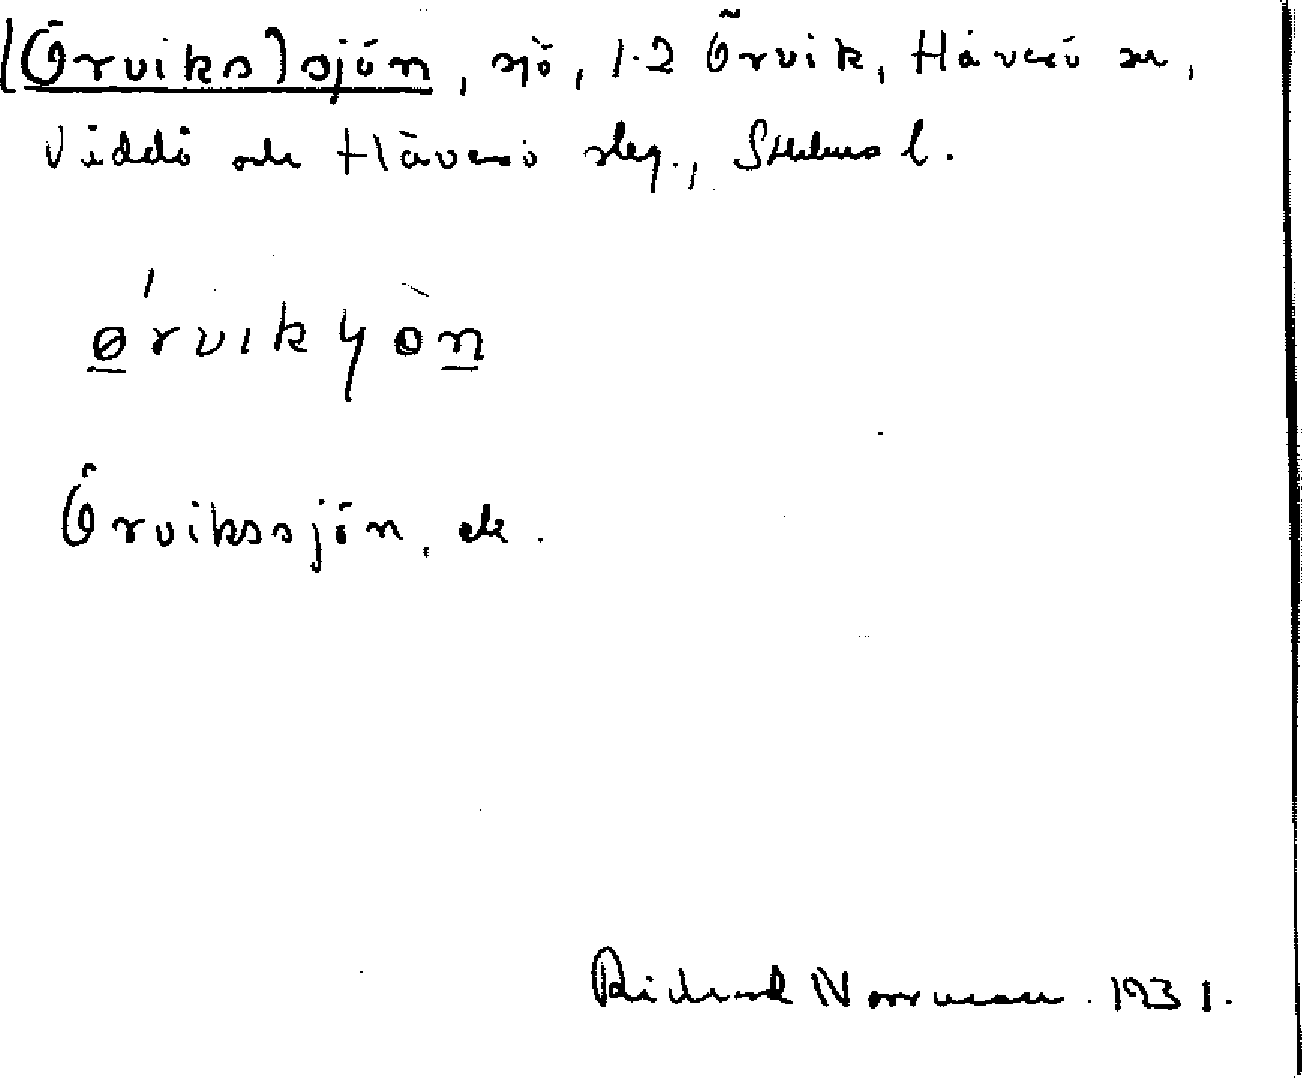 (Örviks)sjön, sjö, 1.2 Örvik, Häverö sn,
Väddö och Häverö skg., Sthlms l.
Örvikssjön, ek.
Richard Norrman. 1931.